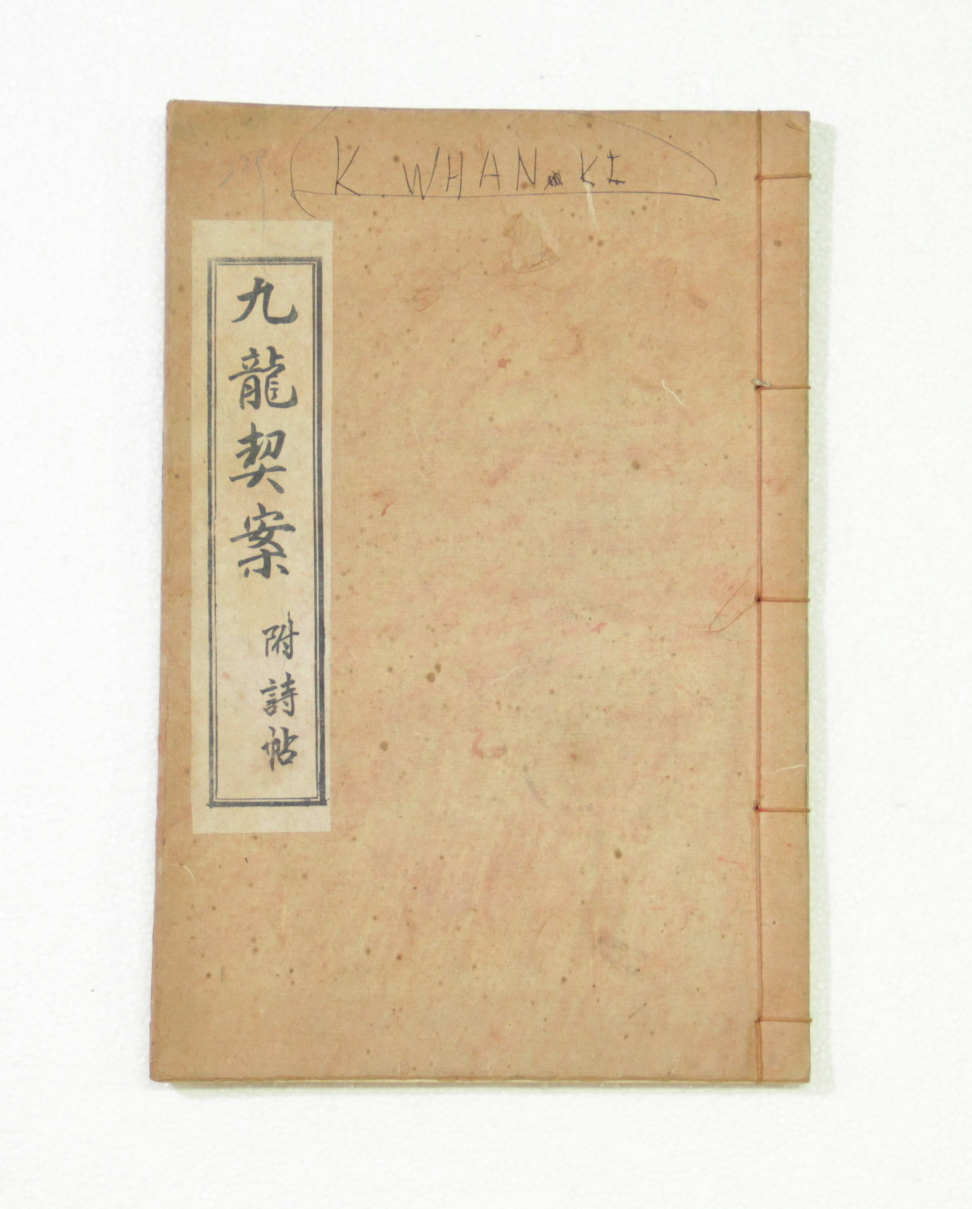 K. WHAN KI
九龍契案
附詩帖